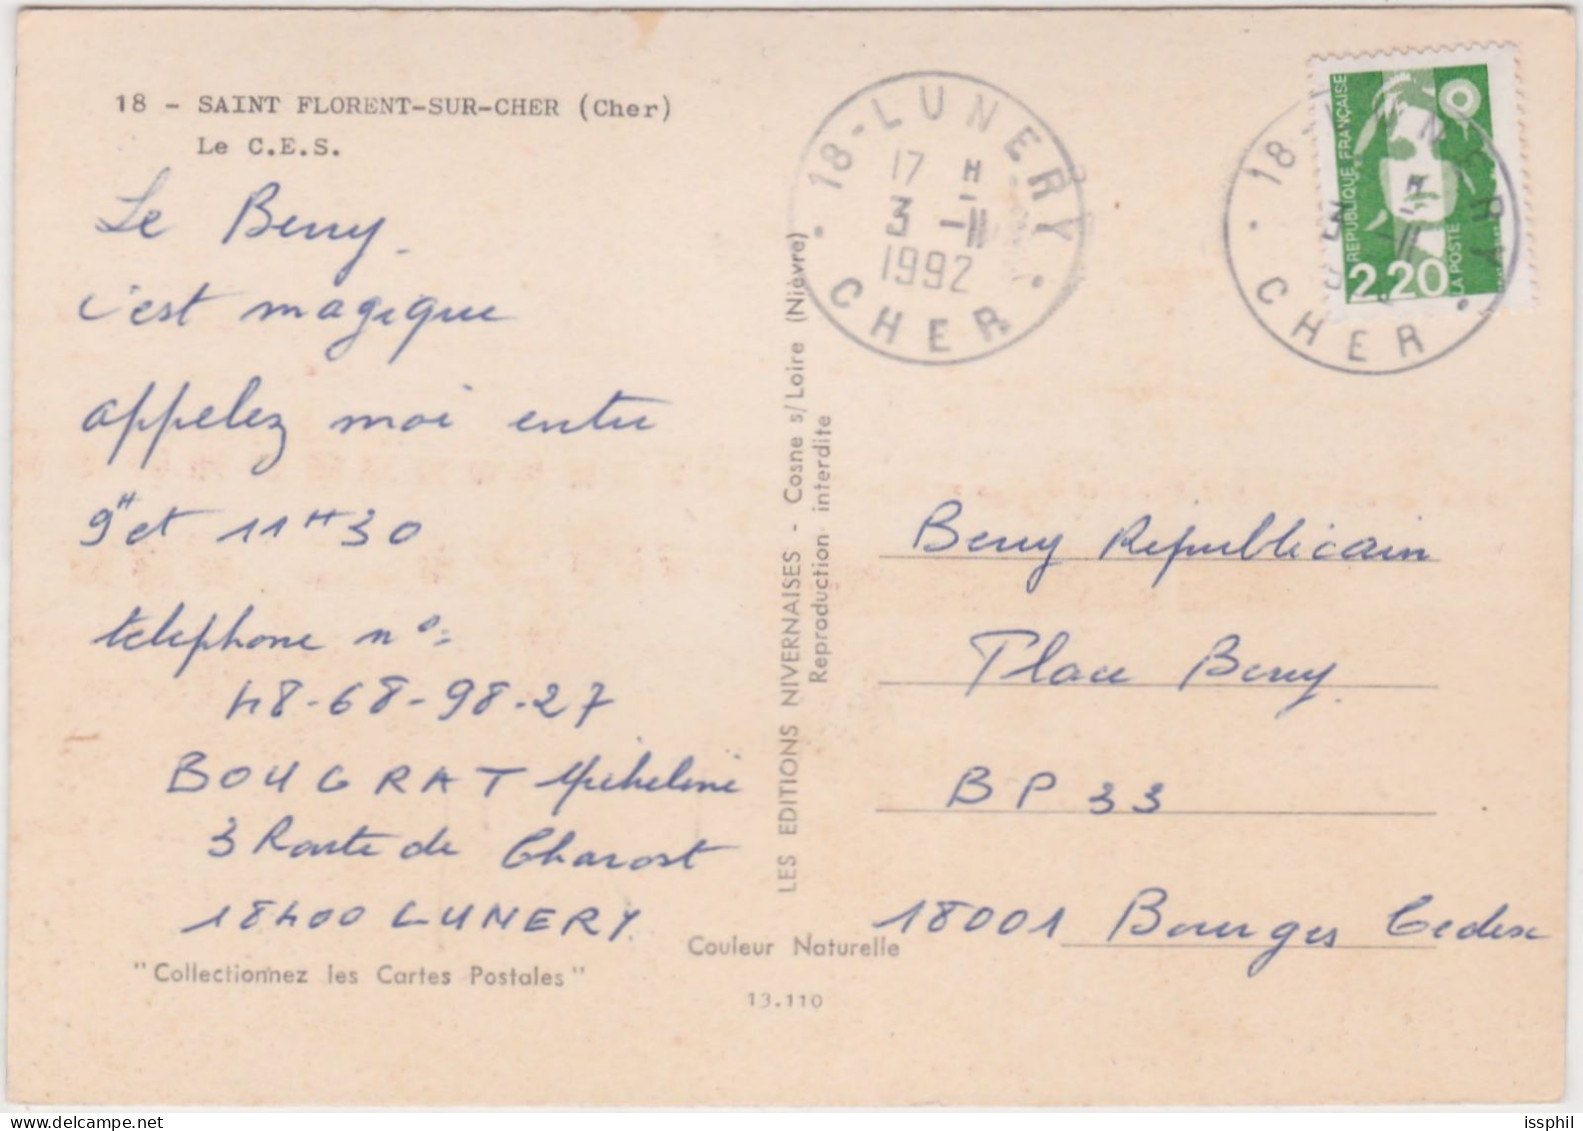 18 - SAINT FLORENT-SUR-CHER (Cher)
Le C.E.S.
Le Berry
c'est magique
appelez moi entre
9H et 11H30
telephone n°:
48-68-98-27
BOUGRAT Micheline
3 Route de Charost
18400 LUNERY
"Collectionnez les Cartes Postales"
LES EDITIONS NIVERNAISES - Cosne s/Loire (Nièvre)
Reproduction interdite
Couleur Naturelle
13.110
18-LUNERY
17 H
3 -11
1992
CHER
18-LUNERY
CHER
REPUBLIQUE FRANÇAISE
2,20
LA POSTE
Berry Republicain
Place Berry
BP 33
18001 Bourges Cedex
issphil